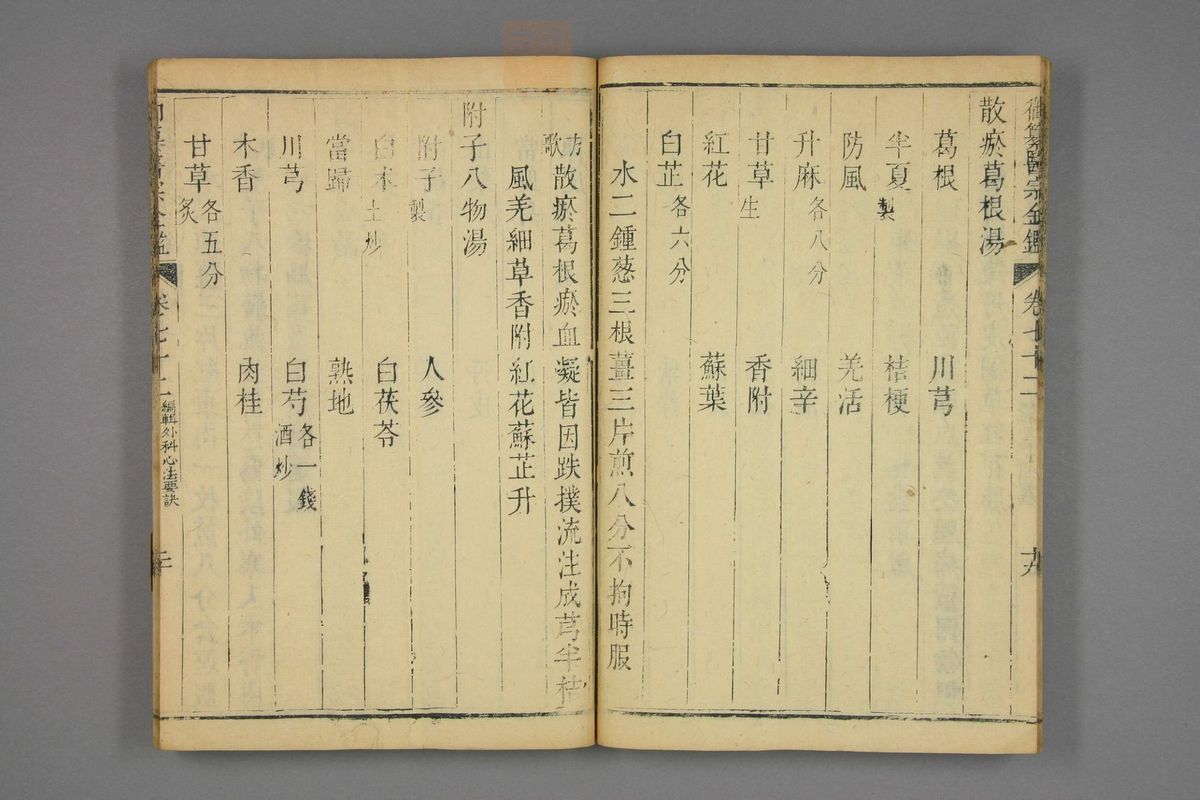 御纂醫宗金鑑 卷七十二
散瘀葛根湯
葛根 川芎
半夏製 桔梗
防風 羌活
升麻各八分 細辛
甘草生 香附
紅花 蘇葉
白芷各六分
水二鍾葱三根薑三片煎八分不拘時服
方歌 散瘀葛根瘀血凝皆因跌撲流注成芎半桔
風羌細草香附紅花蘇芷升
附子八物湯
附子製 人參
白朮土炒 白茯苓
當歸 熟地
川芎 白芍酒炒各一錢
木香 肉桂
甘草炙各五分
卷七十二 編輯外科心法要訣